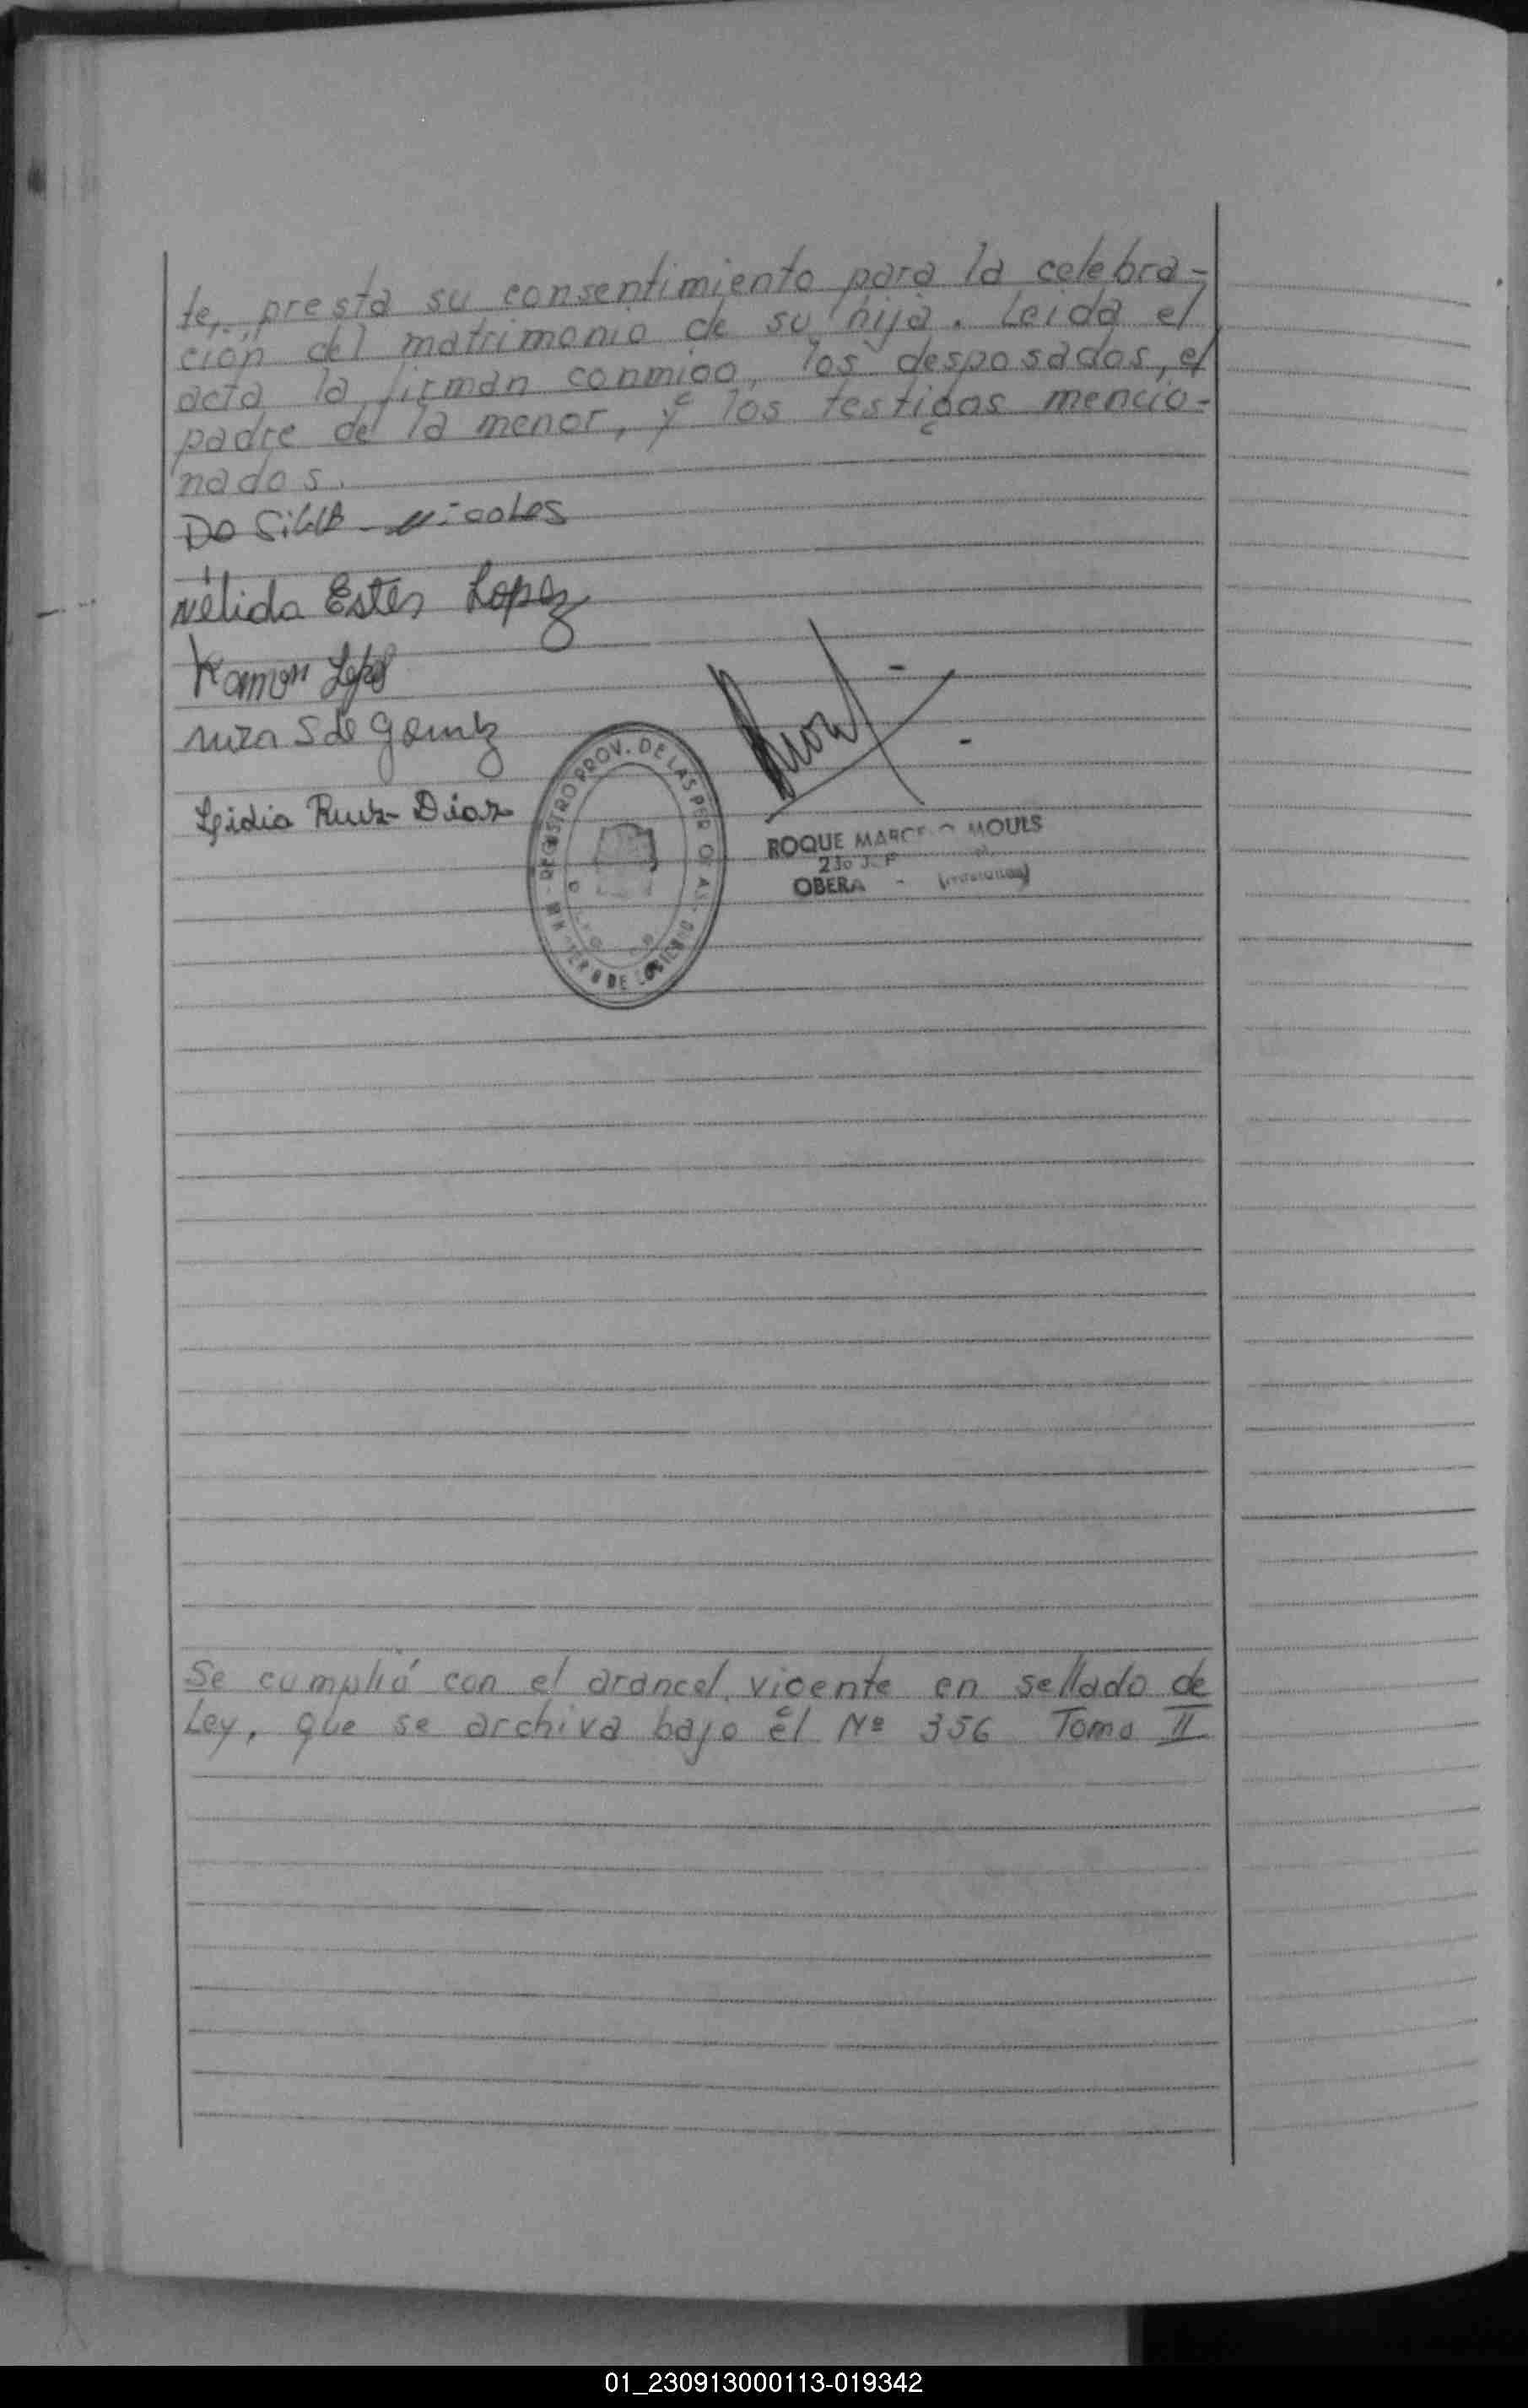 te, presta su consentimiento para la celebra-
ción del matrimonio de su hija. Leida el
acta la firman conmigo, los desposados, el
padre de la menor, y los testigos mencio-
nados.
Do Silva
Nélida Ester Lopez
Ramon Lopez
S de Gomez
Lidia Ruiz Diaz
REGISTRO PROV. DE LAS PER
DE
ROQUE MARCE O MOULS
OBERA -
Se cumplió con el arancel vigente en sellado de
Ley, que se archiva bajo el Nº 356 Tomo II
01_230913000113-019342